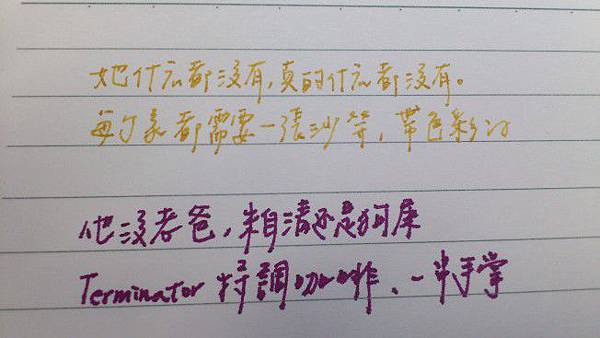 她什么都沒有,真的什么都沒有。
每个家都需要一張沙,帶色彩的
他沒老爸,朱自清还是狗屎
Terminator 特調咖啡、一半手掌